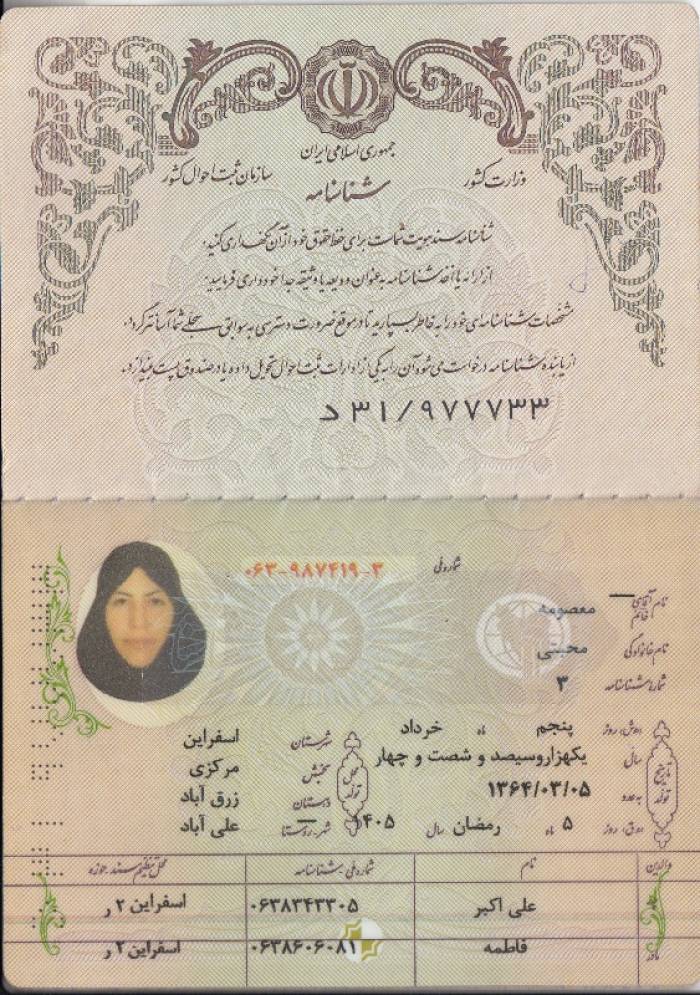 جمهوری اسلامی ایران
وزارت کشور
سازمان ثبت احوال کشور
شناسنامه
شناسنامه سند هویت شماست برای حفظ حقوق خود از آن نگهداری کنید.
از ارائه یا اخذ شناسنامه به عنوان ودیعه یا وثیقه جداً خودداری فرمایید.
مشخصات شناسنامه‌ای خود را به خاطر بسپارید تا در موقع ضرورت دسترسی به سوابق سجلی شما آسانتر گردد.
از یابنده شناسنامه درخواست می‌شود آن را به یکی از ادارات ثبت احوال تحویل داده یا در صندوق پست بیندازد.
د ۳۱/۹۷۷۷۳۳
شماره ملی ۰۶۳-۹۸۷۴۱۹-۳
نام آقای خانم معصومه
نام خانوادگی محبتی
شماره شناسنامه ۳
تاریخ تولد
(ه‍.ش) روز پنجم ماه خرداد
سال یکهزاروسیصد و شصت و چهار
به عدد ۱۳۶۴/۰۳/۰۵
(ه‍.ق) روز ۵ ماه رمضان سال ۱۴۰۵
محل تولد
شهرستان اسفراین
بخش مرکزی
دهستان زرق آباد
شهر-روستا علی آباد
والدین نام شماره ملی-شناسنامه محل تنظیم سند حوزه
علی اکبر ۰۶۳۸۳۴۳۳۰۵ اسفراین ۲ ر
مادر فاطمه ۰۶۳۸۶۰۶۰۸۱ اسفراین ۲ ر